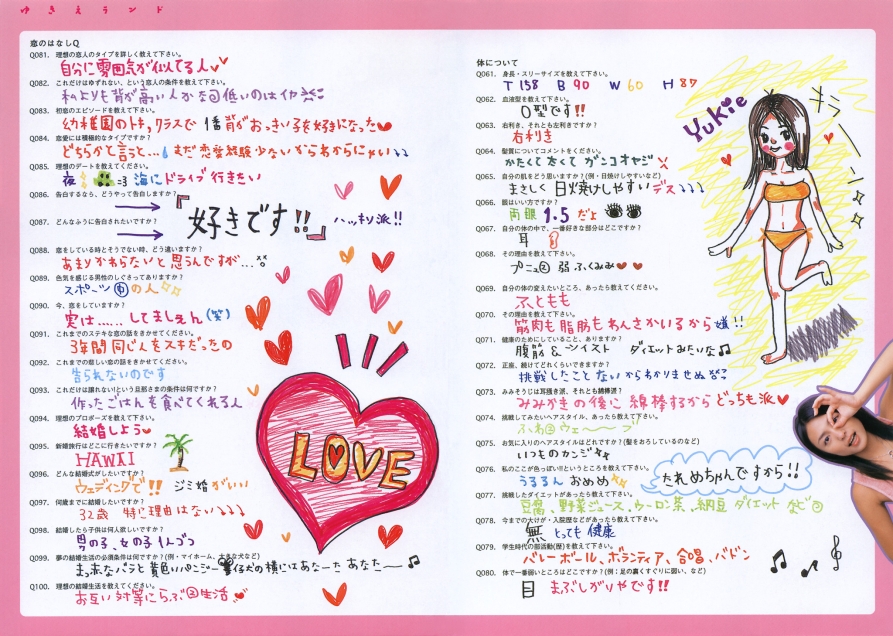 ゆきえランド
恋のはなしQ
Q081. 理想の恋人のタイプを詳しく教えて下さい。
自分に雰囲気が似てる人
Q082. これだけはゆずれない、という恋人の条件を教えて下さい。
私よりも背が高い人かな 低いのはイヤ
Q083. 初恋のエピソードを教えて下さい。
幼稚園のトキ、クラスで1番背がおっきい子を好きになった
Q084. 恋愛には積極的なタイプですか?
どちらかと言うと… まだ恋愛経験少ないからわからにゃい
Q085. 理想のデートを教えてください。
夜 海にドライブ行きたい
Q086. 告白するなら、どうやって告白しますか?
『好きです!!』 ハッキリ派!!
Q087. どんなふうに告白されたいですか?
Q088. 恋をしている時とそうでない時、どう違いますか?
あまりかわらないと思うんですが…
Q089. 色気を感じる男性のしぐさってありますか?
スポーツ中の人
Q090. 今、恋をしていますか?
実は……してましぇん(笑)
Q091. これまでのステキな恋の話をきかせてください。
3年間同じ人をスキだったの
Q092. これまでの悲しい恋の話をきかせてください。
告られないのです
Q093. これだけは譲れない!という旦那さまの条件は何ですか?
作ったごはんを食べてくれる人
Q094. 理想のプロポーズを教えて下さい。
結婚しよう
Q095. 新婚旅行はどこに行きたいですか?
HAWAI
Q096. どんな結婚式がしたいですか?
ウェディングで!! ジミ婚がいい
Q097. 何歳までに結婚したいですか?
32歳 特に理由はない
Q098. 結婚したら子供は何人欲しいですか?
男の子、女の子1人づつ
Q099. 夢の結婚生活の必須条件は何ですか?(例・マイホーム、大きな犬など)
まっ赤なバラと黄色いパンジー 仔犬の横にはあなーた あなたー
Q100. 理想の結婚生活を教えてください。
お互い対等にらぶ②生活
LOVE
体について
Q061. 身長・スリーサイズを教えて下さい。
T 158 B 90 W 60 H 87
Q062. 血液型を教えて下さい。
O型です!!
Q063. 右利き、それとも左利きですか?
右利き
Q064. 髪質についてコメントをください。
かたくて太くて ガンコオヤジ
Q065. 自分の肌をどう思いますか?(例・日焼けしやすいなど)
まさしく 日焼けしやすいデス
Q066. 眼はいい方ですか?
両眼1.5だよ
Q067. 自分の体の中で、一番好きな部分はどこですか?
耳
Q068. その理由を教えて下さい。
プニュ② 弱ふくみみ
Q069. 自分の体の変えたいところ、あったら教えてください。
ふともも
Q070. その理由を教えて下さい。
筋肉も脂肪もわんさかいるから嫌!!
Q071. 健康のためにしていること、ありますか?
腹筋&ツイスト ダイエットみたいな♫
Q072. 正座、続けてどれくらいできますか?
挑戦したことないからわかりませぬ
Q073. みみそうじは耳掻き派、それとも綿棒派?
みみかきの後に綿棒するからどっちも派
Q074. 挑戦してみたいヘアスタイル、あったら教えてください。
ふわ②ウェ〜〜ブ
Q075. お気に入りのヘアスタイルはどれですか?(髪をおろしているのなど)
いつものカンジ
Q076. 私のここが色っぽい!!というところを教えてください。
うるるん おめめ
たれめちゃんですから!!
Q077. 挑戦したダイエットがあったら教えて下さい。
豆腐、野菜ジュース、ウーロン茶、納豆ダイエットなど
Q078. 今までの大けが・入院歴などがあったら教えて下さい。
無 とっても健康
Q079. 学生時代の部活動(歴)を教えて下さい。
バレーボール、ボランティア、合唱、バドン
Q080. 体で一番弱いところはどこですか?(例;足の裏くすぐりに弱い、など)
目 まぶしがりやです!!
Yukie
キラーン